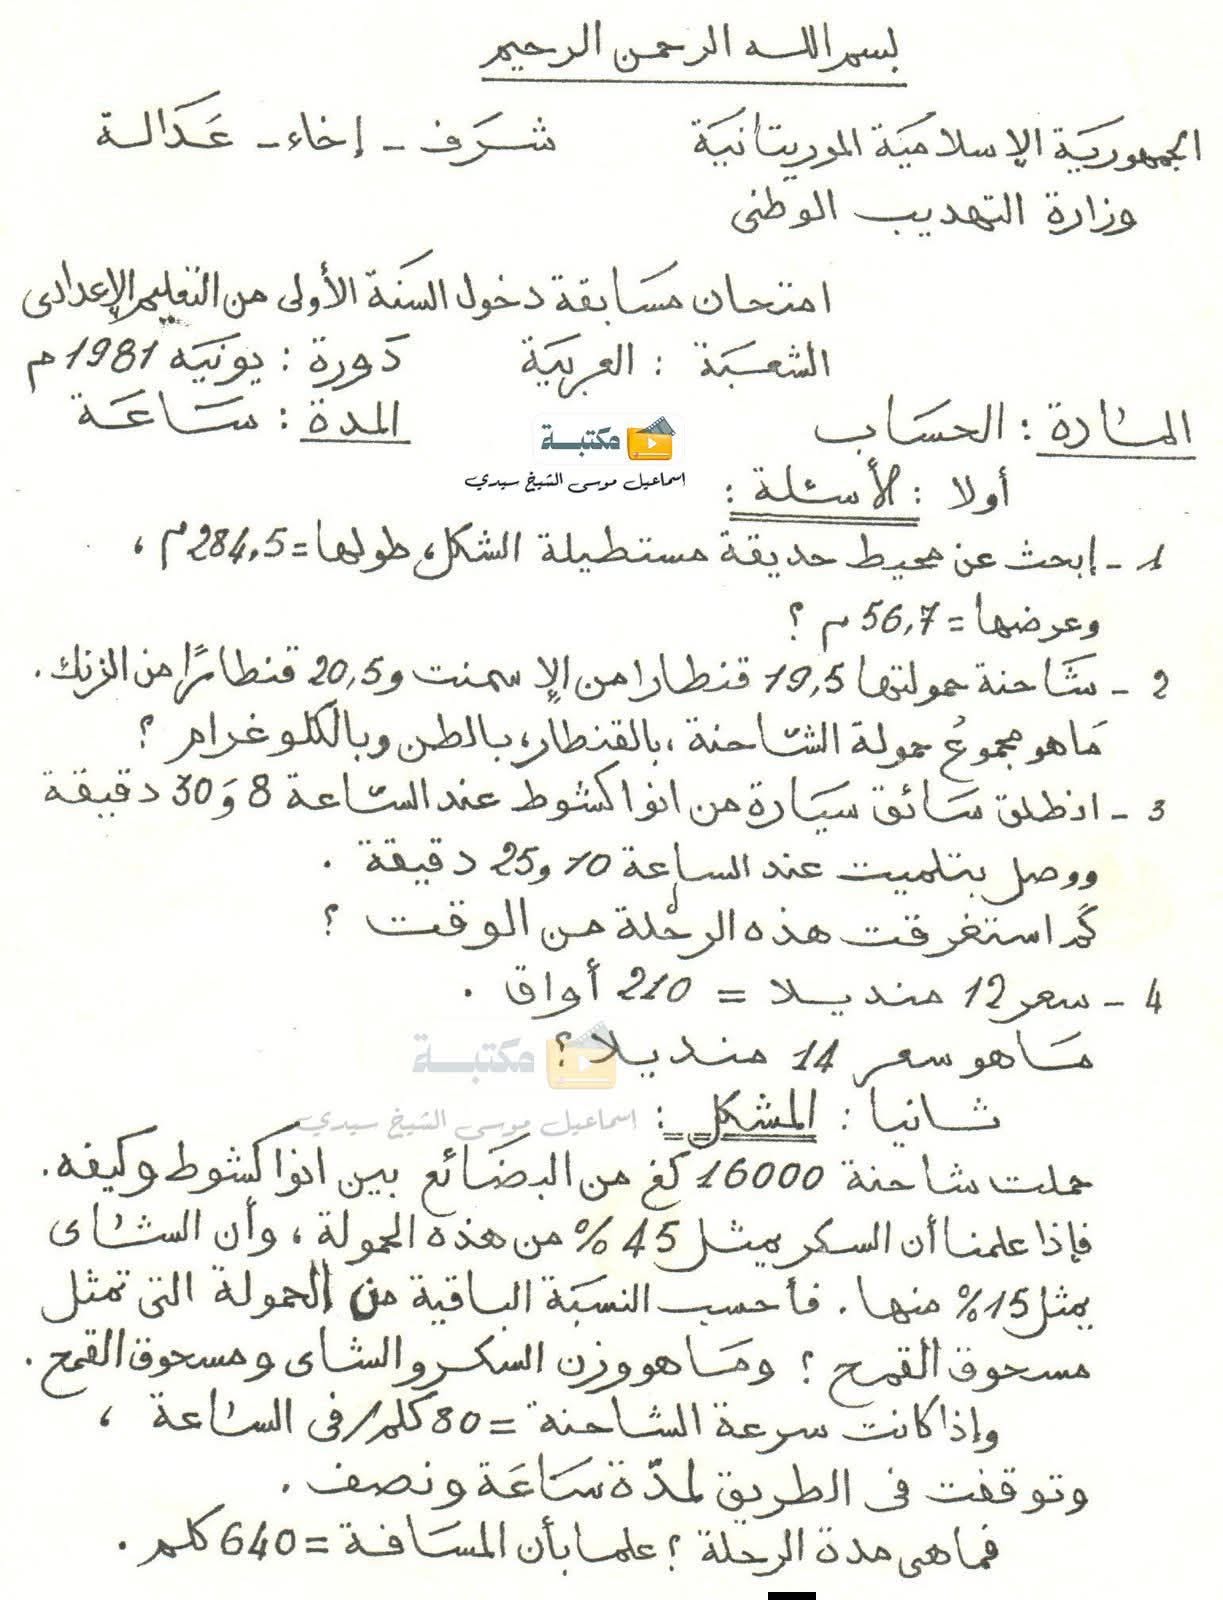 بسم الله الرحمن الرحيم
الجمهورية الإسلامية الموريتانية شرف - إخاء - عدالة
وزارة التهذيب الوطني
امتحان مسابقة دخول السنة الأولى من التعليم الإعدادى
الشعبة : العربية دورة : يونيه 1981 م
المادة : الحساب المدة : ساعة
مكتبة
اسماعيل موسى الشيخ سيدي
أولا : الأسئلة :
1 - إبحث عن محيط حديقة مستطيلة الشكل، طولها = 284,5 م ،
وعرضها = 56,7 م ؟
2 - شاحنة حمولتها 19,5 قنطارا من الإسمنت و 20,5 قنطارًا من الزنك .
ما هو مجموعُ حمولة الشاحنة ، بالقنطار، بالطن وبالكلوغرام ؟
3 - انطلق سائق سيارة من انواكشوط عند الساعة 8 وَ 30 دقيقة
ووصل بتلميت عند الساعة 10 و 25 دقيقة .
كم استغرقت هذه الرحلة من الوقت ؟
4 - سعر 12 منديلا = 210 أواق .
ما هو سعر 14 منديلا ؟
مكتبة
ثانيا : المشكل :
اسماعيل موسى الشيخ سيدي
حملت شاحنة 16000 كغ من البضائع بين انواكشوط وكيفه .
فإذا علمنا أن السكر يمثل 45 % من هذه الحمولة ، وأن الشاى
يمثل 15 % منها . فأحسب النسبة الباقية من الحمولة التى تمثل
مسحوق القمح ؟ وما هو وزن السكر والشاى ومسحوق القمح .
وإذا كانت سرعة الشاحنة = 80 كلم/فى الساعة ،
وتوقفت فى الطريق لمدّة ساعة ونصف .
فما هى مدة الرحلة ؟ علما بأن المسافة = 640 كلم .